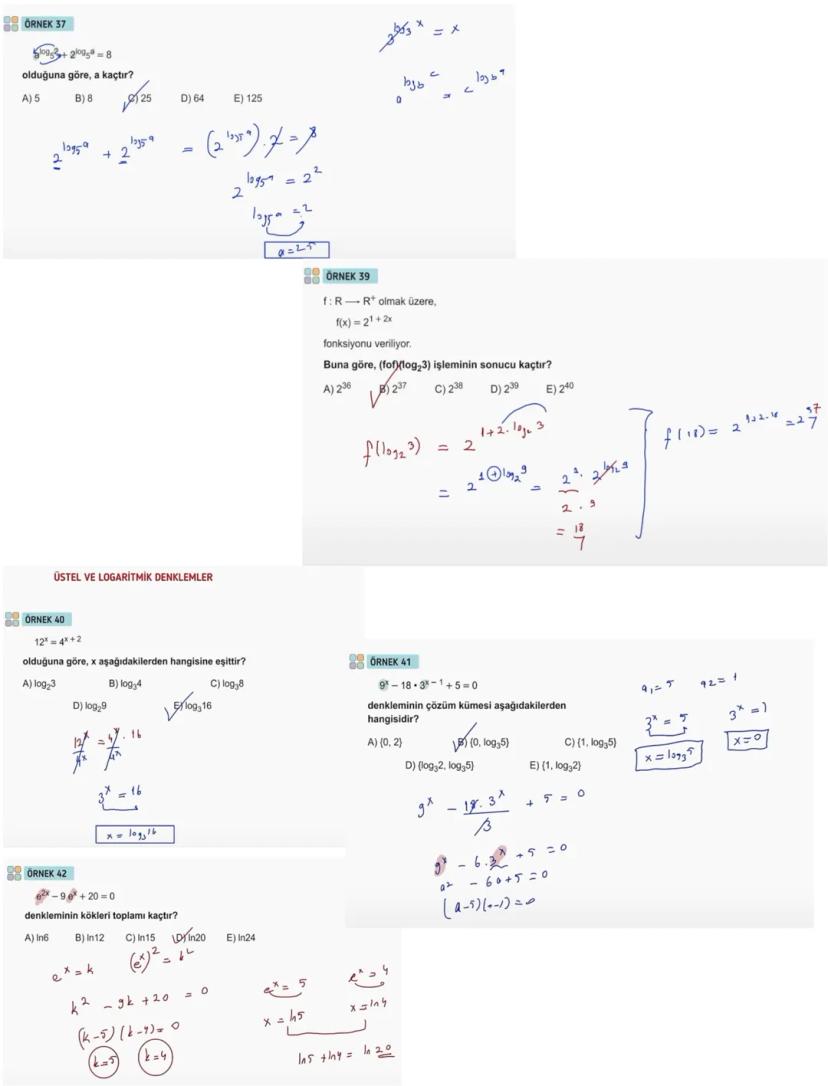 ÖRNEK 37
a^{log₅2} + 2^{log₅a} = 8
olduğuna göre, a kaçtır?
A) 5 B) 8 C) 25 D) 64 E) 125
2^{log₅a} + 2^{log₅a} = (2^{log₅a}) . 2 = 8
2^{log₅a} = 2²
log₅a = 2
a = 25
3^{log₃x} = x
a^{log_b c} = c^{log_b a}
ÖRNEK 39
f : R → R⁺ olmak üzere,
f(x) = 2^{1 + 2x}
fonksiyonu veriliyor.
Buna göre, (fof)(log₂3) işleminin sonucu kaçtır?
A) 2³⁶ B) 2³⁷ C) 2³⁸ D) 2³⁹ E) 2⁴⁰
f(log₂3) = 2^{1+2.log₂3}
= 2^{1+log₂9} = 2¹ . 2^{log₂9}
2 . 9
= 18
f(18) = 2^{1+2.18} = 2³⁷
ÜSTEL VE LOGARİTMİK DENKLEMLER
ÖRNEK 40
12ˣ = 4^{x + 2}
olduğuna göre, x aşağıdakilerden hangisine eşittir?
A) log₂3 B) log₃4 C) log₃8
D) log₂9 E) log₃16
12ˣ/4ˣ = 4ˣ . 16/4ˣ
3ˣ = 16
x = log₃16
ÖRNEK 41
9ˣ – 18 • 3^{x – 1} + 5 = 0
denkleminin çözüm kümesi aşağıdakilerden
hangisidir?
A) {0, 2} B) {0, log₃5} C) {1, log₃5}
D) {log₃2, log₃5} E) {1, log₃2}
9ˣ - 18. 3ˣ/3 + 5 = 0
9ˣ - 6.3ˣ + 5 = 0
a² - 6a + 5 = 0
(a-5)(a-1) = 0
a₁ = 5 a2 = 1
3ˣ = 5 3ˣ = 1
x = log₃5 x = 0
ÖRNEK 42
e²ˣ – 9 eˣ + 20 = 0
denkleminin kökleri toplamı kaçtır?
A) ln6 B) ln12 C) ln15 D) ln20 E) ln24
eˣ = k (eˣ)² = k²
k² - 9k + 20 = 0
(k-5)(k-4) = 0
k=5 k=4
eˣ = 5 eˣ = 4
x = ln5 x = ln4
ln5 + ln4 = ln20